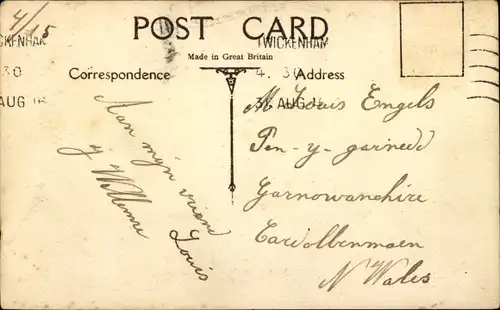 4/15
POST CARD
TWICKENHAM
Made in Great Britain
Correspondence
Address
4. 30
31 AUG
WICKENHAM
30
AUG 16
Aan mijn vriend
Louis
J Willems
M Louis Engels
Pen-y-garnedd
Garnowanchire
Cardolbenmaen
N Wales